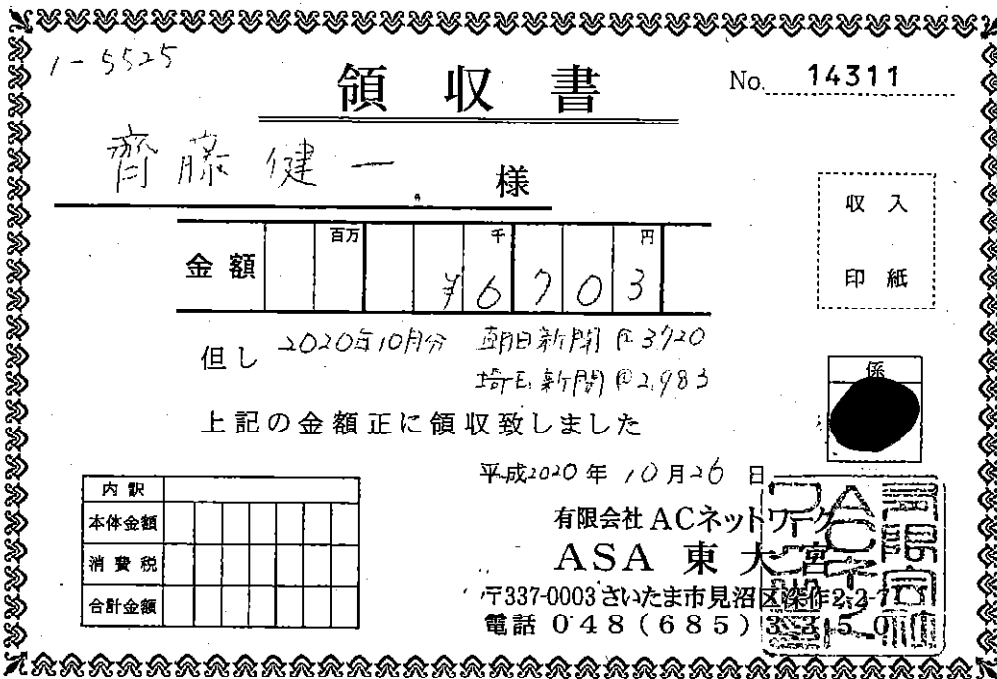 1-5525
領収書
No. 14311
齊藤健一 様
収入
印紙
金額 百万 千 円
¥6703
但し 2020年10月分 朝日新聞 @3720
埼玉新聞 @2,983
上記の金額正に領収致しました
係
平成2020年10月26日
内訳
本体金額
消費税
合計金額
有限会社ACネットワーク
ASA 東大宮
〒337-0003 さいたま市見沼区深作2-2-7
電話 048(685)3350